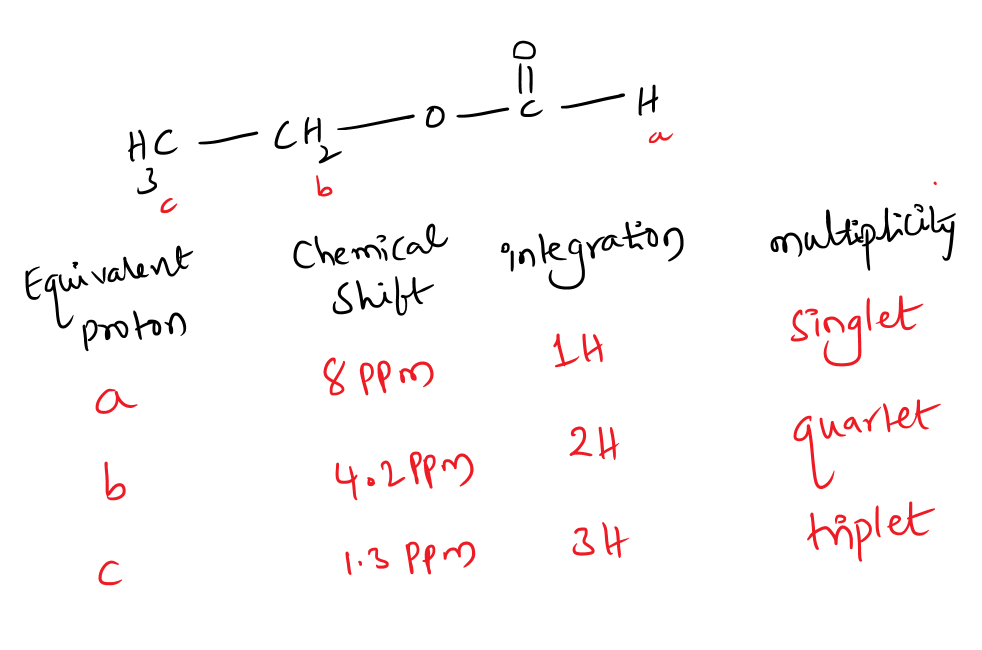 O
H3C — CH2 — O — C — H
c b a
Equivalent proton Chemical Shift integration multiplicity
a 8 ppm 1H Singlet
b 4.2 ppm 2H quartet
c 1.3 ppm 3H triplet